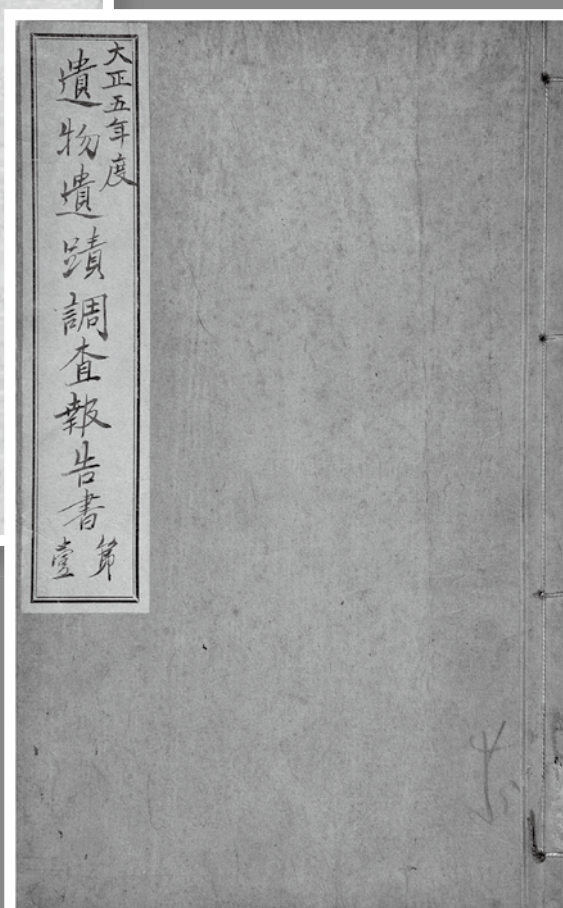 大正五年度
遺物遺蹟調査報告書
第
壹